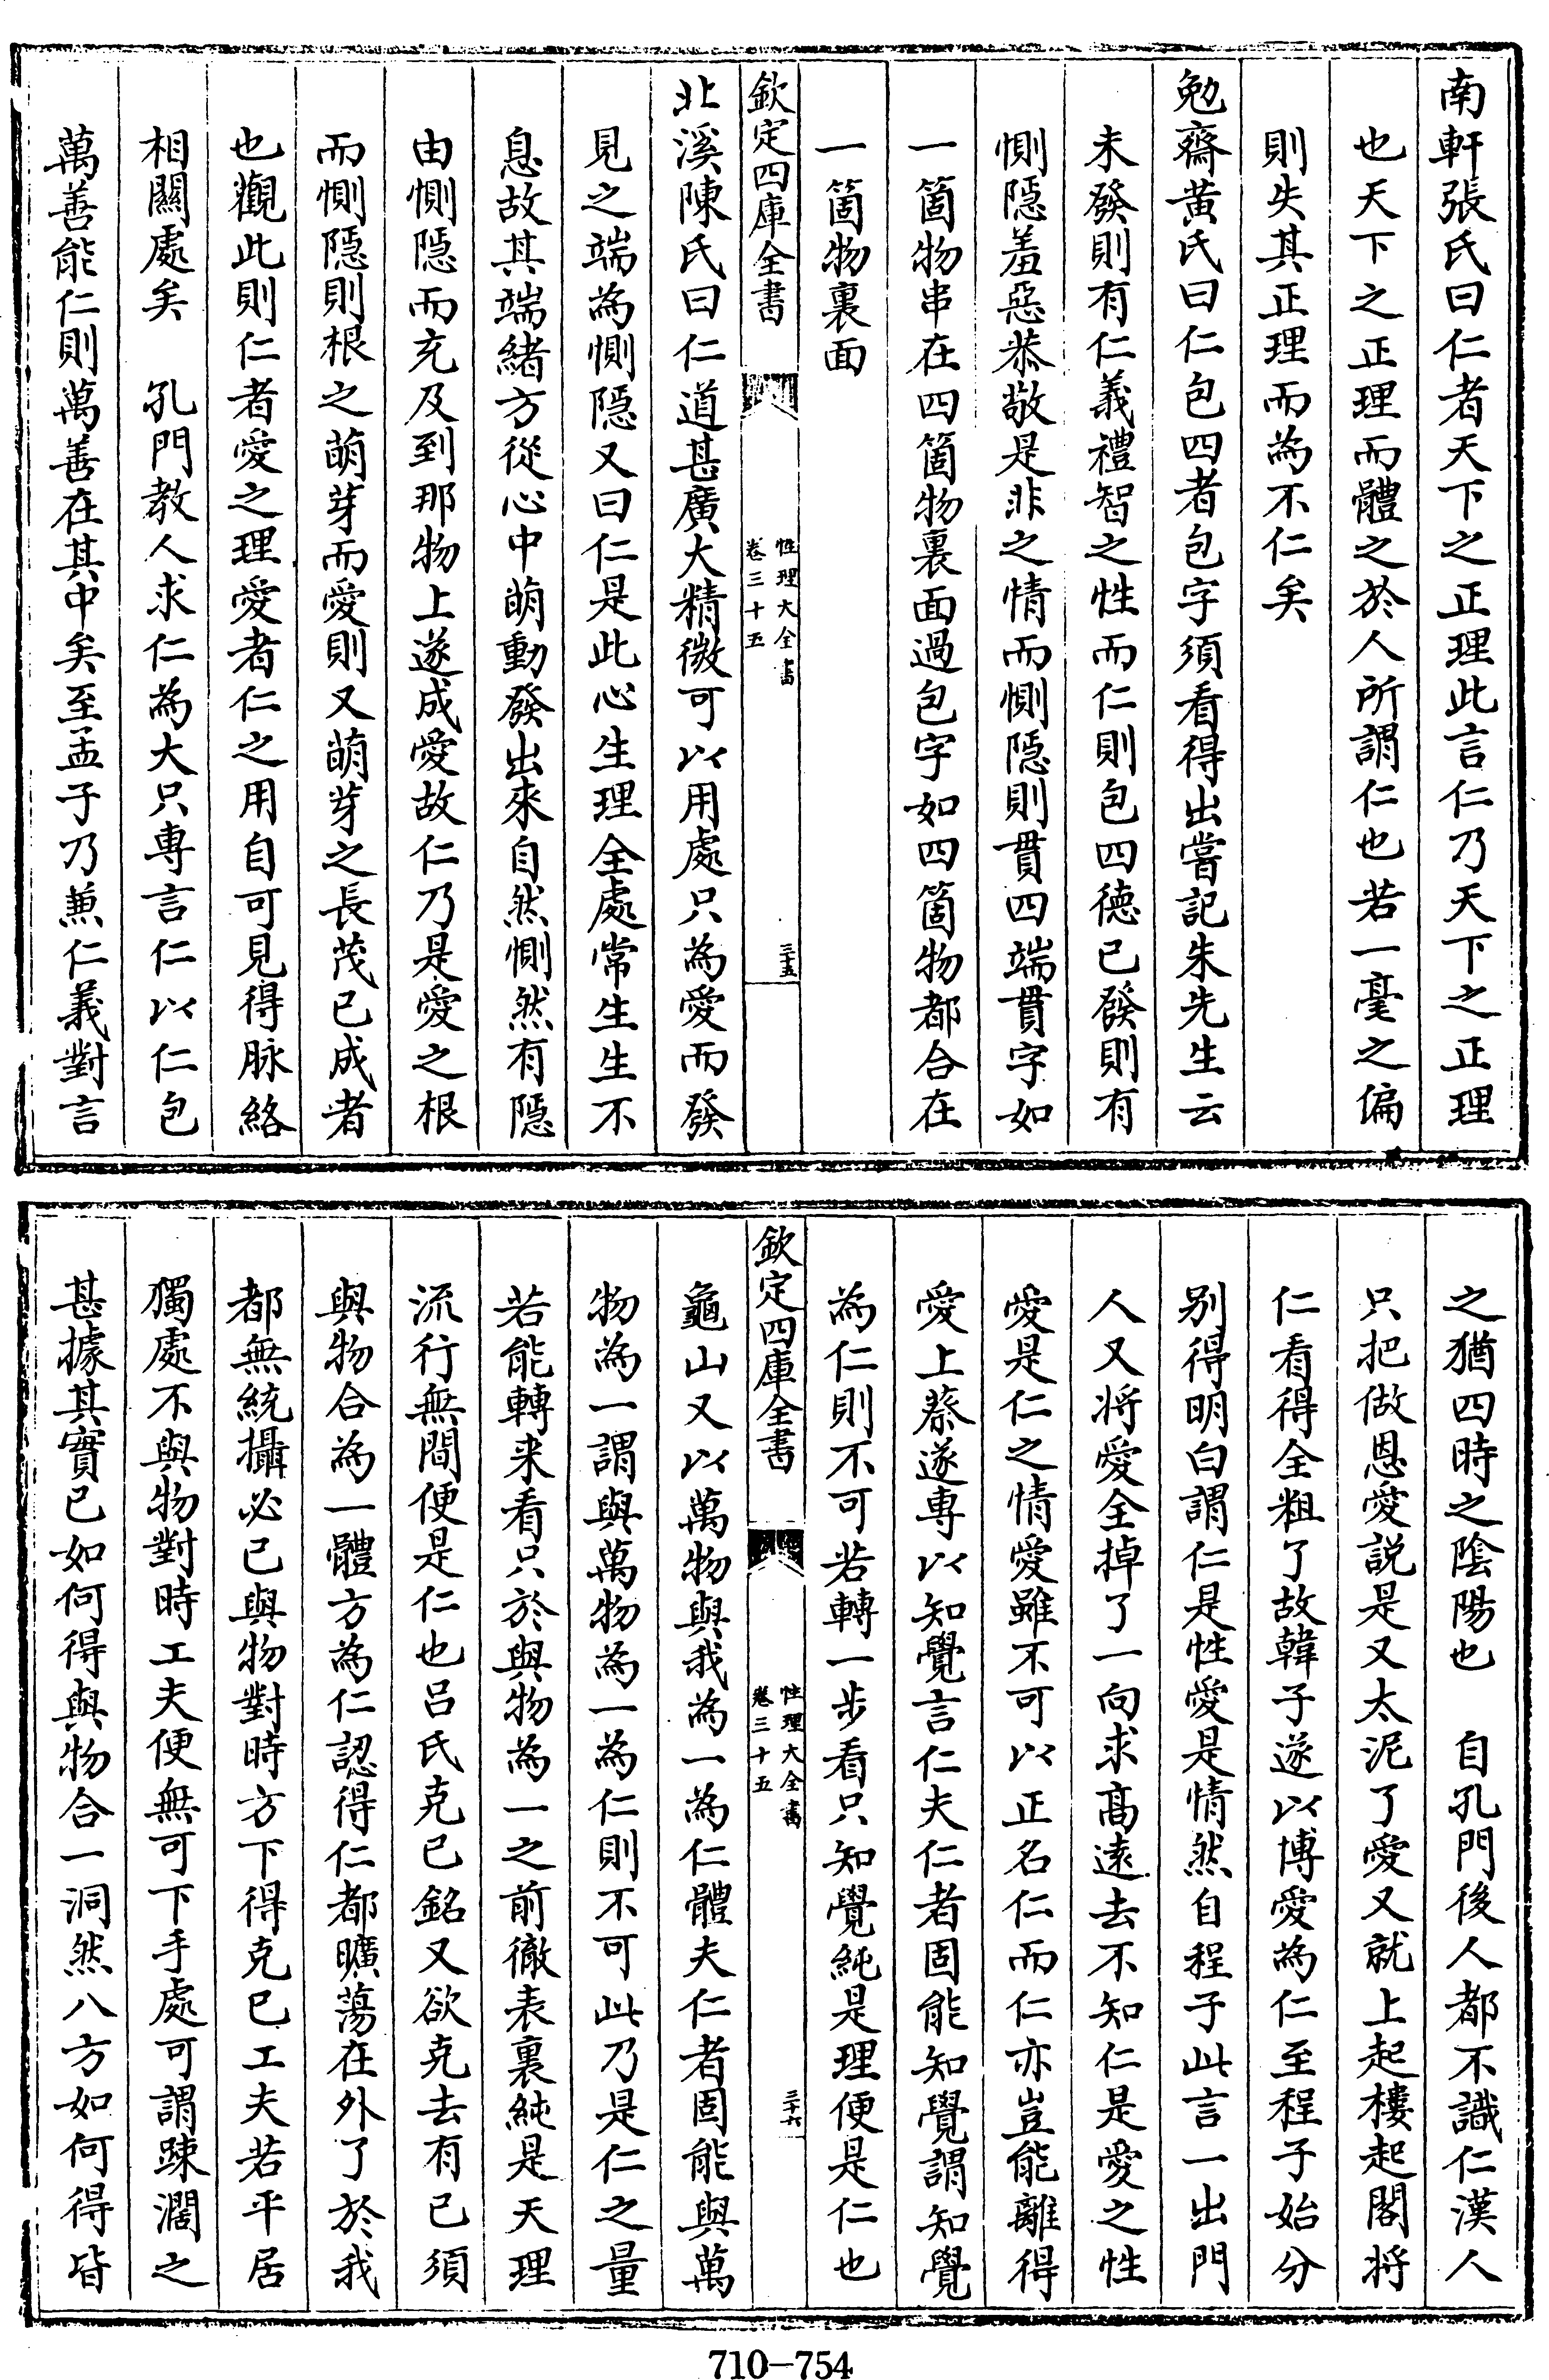 南軒張氏曰仁者天下之正理此言仁乃天下之正理
也天下之正理而體之於人所謂仁也若一毫之偏
則失其正理而為不仁矣
勉齋黃氏曰仁包四者包字須看得出嘗記朱先生云
未發則有仁義禮智之性而仁則包四德已發則有
惻隠羞惡恭敬是非之情而惻隠則貫四端貫字如
一箇物串在四箇物裏面過包字如四箇物都合在
一箇物裏面
欽定四庫全書
性理大全書
卷三十五
三十五
北溪陳氏曰仁道甚廣大精微可以用處只為愛而發
見之端為惻隠又曰仁是此心生理全處常生生不
息故其端緒方從心中萌動發出來自然惻然有隠
由惻隠而充及到那物上遂成愛故仁乃是愛之根
而惻隠則根之萌芽而愛則又萌芽之長茂已成者
也觀此則仁者愛之理愛者仁之用自可見得脉絡
相關處矣　孔門教人求仁為大只專言仁以仁包
萬善能仁則萬善在其中矣至孟子乃兼仁義對言
之猶四時之陰陽也　自孔門後人都不識仁漢人
只把做恩愛説是又太泥了愛又就上起樓起閣將
仁看得全粗了故韓子遂以博愛為仁至程子始分
别得明白謂仁是性愛是情然自程子此言一出門
人又將愛全掉了一向求髙逺去不知仁是愛之性
愛是仁之情愛雖不可以正名仁而仁亦豈能離得
愛上蔡遂專以知覺言仁夫仁者固能知覺謂知覺
為仁則不可若轉一步看只知覺純是理便是仁也
欽定四庫全書
性理大全書
卷三十五
三十六
龜山又以萬物與我為一為仁體夫仁者固能與萬
物為一謂與萬物為一為仁則不可此乃是仁之量
若能轉来看只於與物為一之前徹表裏純是天理
流行無間便是仁也吕氏克已銘又欲克去有已須
與物合為一體方為仁認得仁都曠蕩在外了於我
都無統攝必已與物對時方下得克已工夫若平居
獨處不與物對時工夫便無可下手處可謂踈濶之
甚據其實已如何得與物合一洞然八方如何得皆
710-754